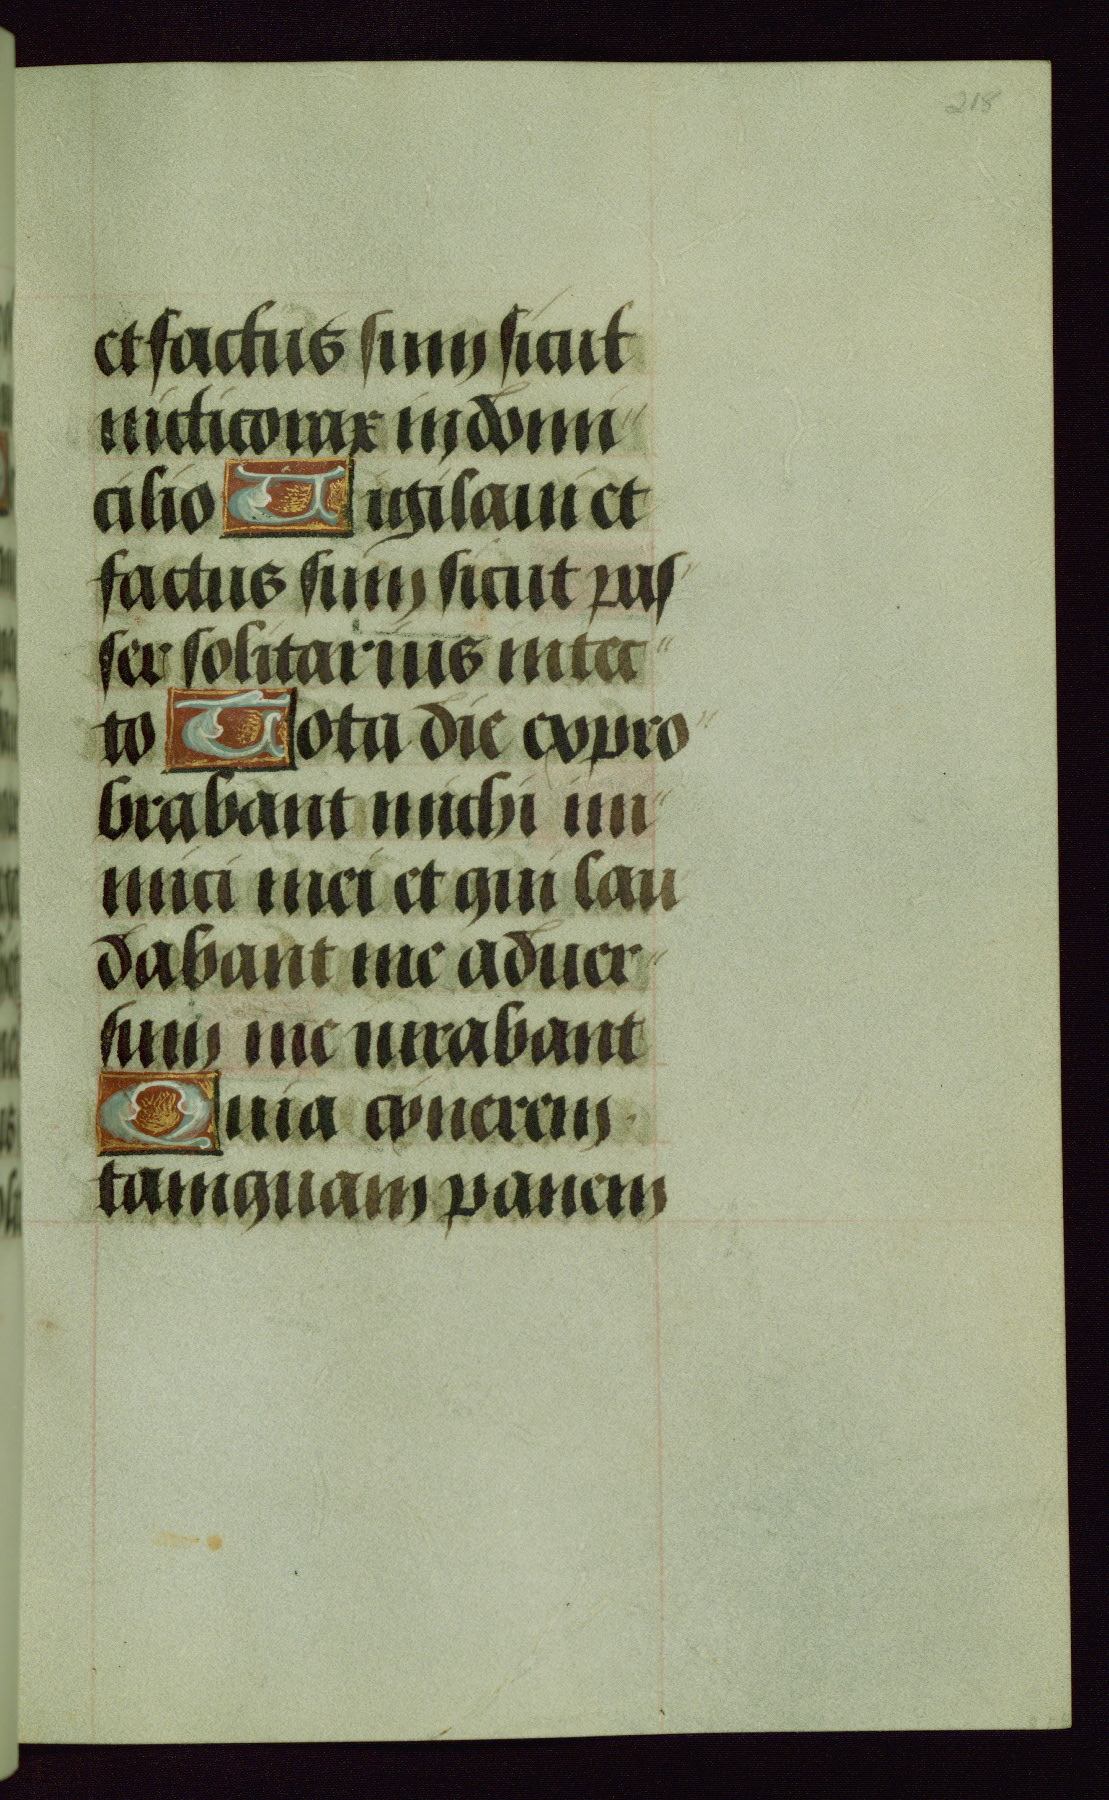 218
et factus sum sicut
nicticorax in domi
cilio Vigilaui et
factus sum sicut pas
ser solitarius in tec
to Tota die expro
brabant michi ini
mici mei et qui lau
dabant me aduer
sum me iurabant
Quia cỹnerem
tamquam panem